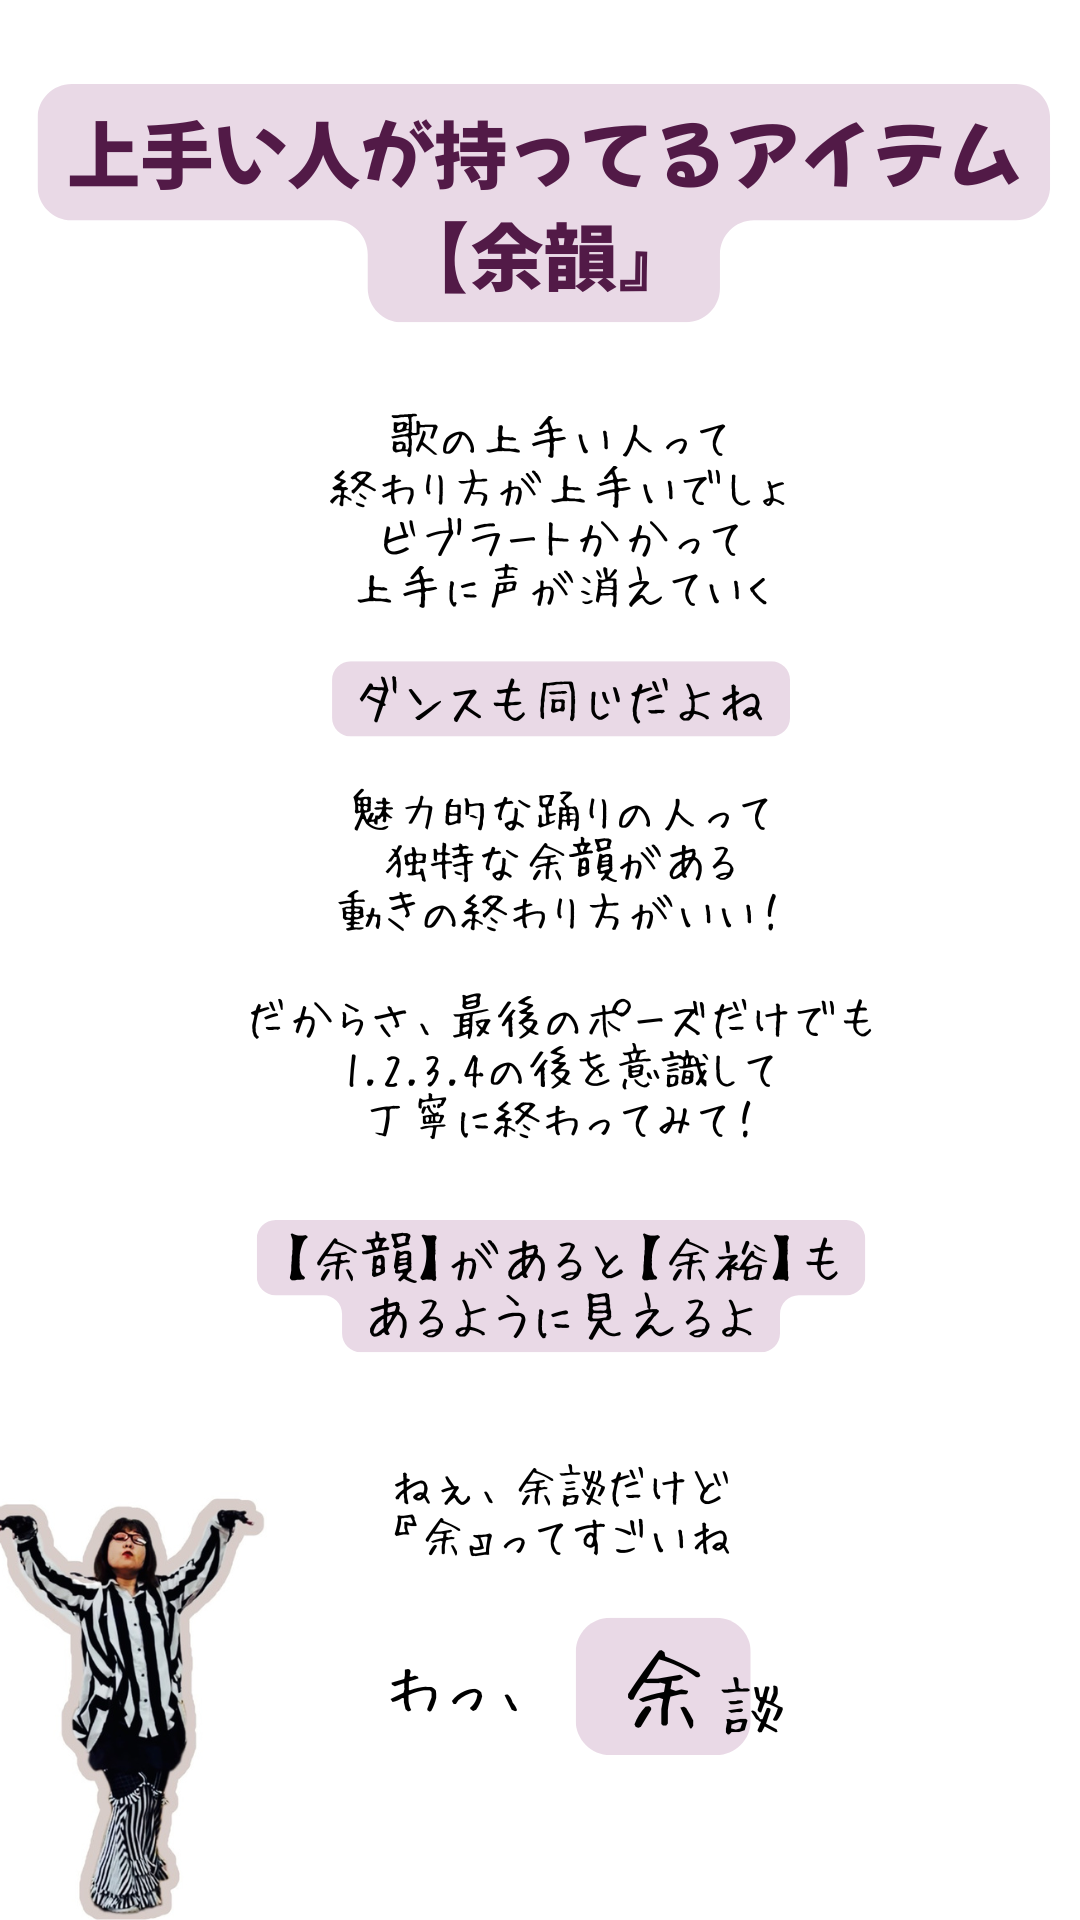 上手い人が持ってるアイテム
【余韻』
歌の上手い人って
終わり方が上手いでしょ
ビブラートかかって
上手に声が消えていく
ダンスも同じだよね
魅力的な踊りの人って
独特な余韻がある
動きの終わり方がいい!
だからさ、最後のポーズだけでも
1.2.3.4の後を意識して
丁寧に終わってみて!
【余韻】があると【余裕】も
あるように見えるよ
ねぇ、余談だけど
『余』ってすごいね
わっ、余談